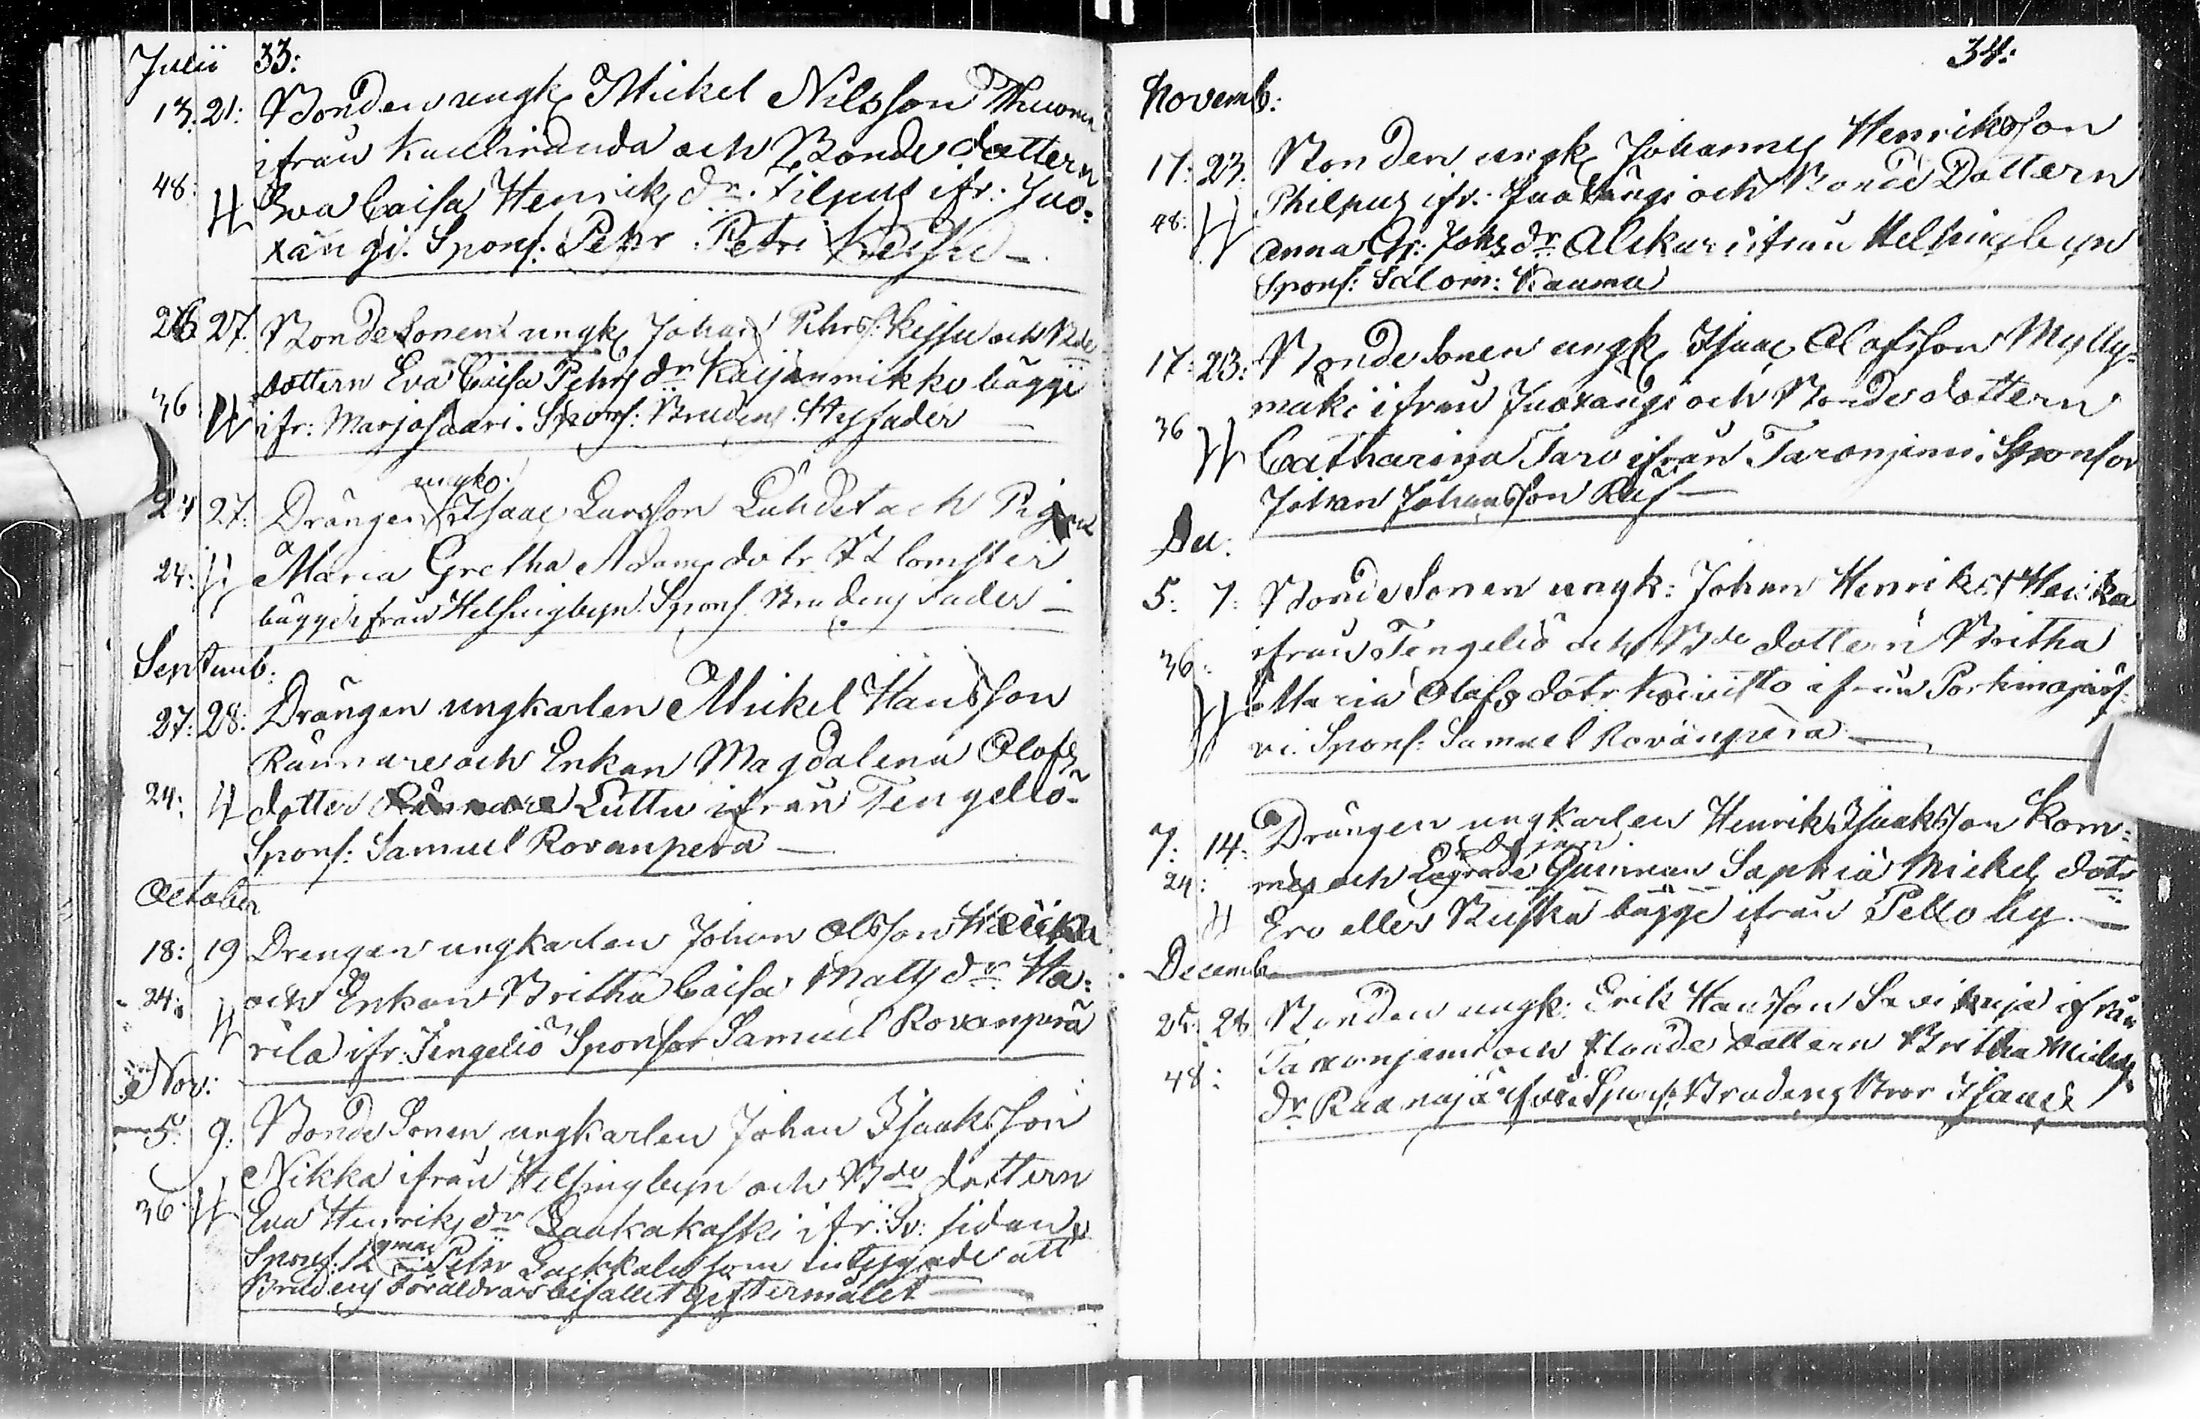 Julii 33:
13. 21: Bonden ungk Mickel Nilsson Thuoma
ifrån Kauliranda och Bonde dottern
48: Eva Caisa Henriks dr. Filpus ifr: Juo:
xängi. Spons: Petr Petri Keisu
26 27. Bondesonen ungk Johan Pehrs: Kissu och Bde
dottern Eva Caisa Pehrs dr Kaijanmikko bägge
36 ifr: Marjosaari. Spons: Brudens Styffader
ungk:
24 27: Drängen Isaac Larsson Lahdet och Pigan
24: Maria Gretha Adams dotr Blomster
bägge ifrån Helsingbyn. Spons Brudens Fader
Septemb:
27: 28: Drängen ungkarlen Mickel Hansson
Rännare och Enkan Magdalena Olofs
24: dotter Luttu ifrån Tengeliö
Spons: Samuel Rovanpera
October
18: 19 Drengen ungkarlen Johan Olsson Heikka
24: och Enkan Britha Caisa Matts dr Ha:
rila ifr: Tengeliö Sponsor Samuel Rovanperä
Nov:
5: 9: Bonde Sonen ungkarlen Johan Isaksson
Nikka ifrån Helsingbyn och Bde dottern
36 Eva Henriks dr Laukakoski ifr: Sv: sidan
Spons: gmar Petr Lackkala som intygade att
Brudens föräldrar bifallit giftermålet
34:
Novemb:
17: 23: Bonden ungk Johannes Henriksson
Philpus ifr. Juoxängi och Bonde Dottern
48: Anna Gr: Johs dr: Alckar ifrån Helsingbyn
Spons: Salom: Kauma
17: 23: Bonde Sonen ungk Isaac Olofsson Mylly=
mäki ifrån Juoxängi och Bonde dottern
36 Catharina Taro ifrån Taronjemi. Sponsor
Johan Johansson Rus
Dec:
5: 7: Bonde Sonen ungk: Johan Henriks: Heikka
ifrån Tengeliö och Bde dottern Britha
36: Maria Olofs dotr Koivisto ifrån Portimojärf:
vi. Spons: Samuel Rovänpera
7: 14: Drängen ungkarlen Henrik Isaksson Kom:
24: mes och Lägrade Quinnan Saphia Mickels dotr
Ero eller Ruska bägge ifrån Pello by.
Decemb
25: 28 Bonden ungk: Erik Hansson Savikuja ifrån
Taronjemi och Bonde dottern Britha Mickels
48: Dr Raanojärfvi Spons: Brudens Bror Isaack